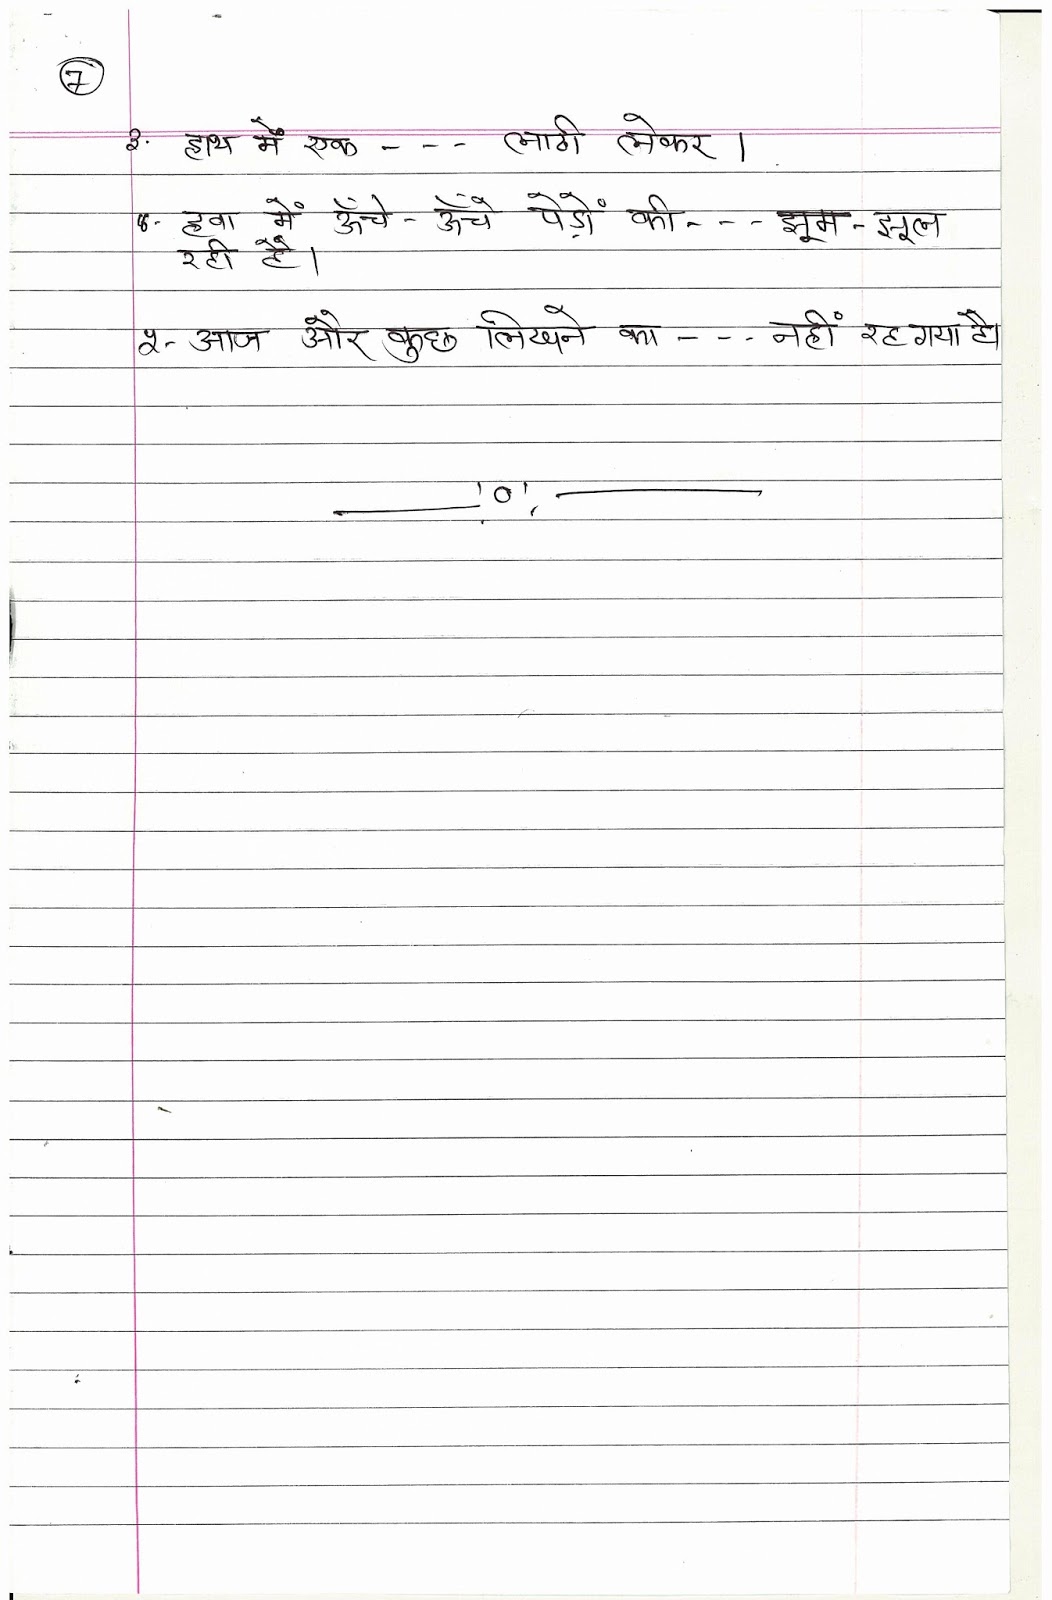 7
३. हाथ में एक - - - - लाठी लेकर ।
४- हवा में ऊँचे- ऊँचे पेड़ों की- - - - झूम - झूल
रही हैं ।
५- आज और कुछ लिखने का - - - - नहीं रह गया है।